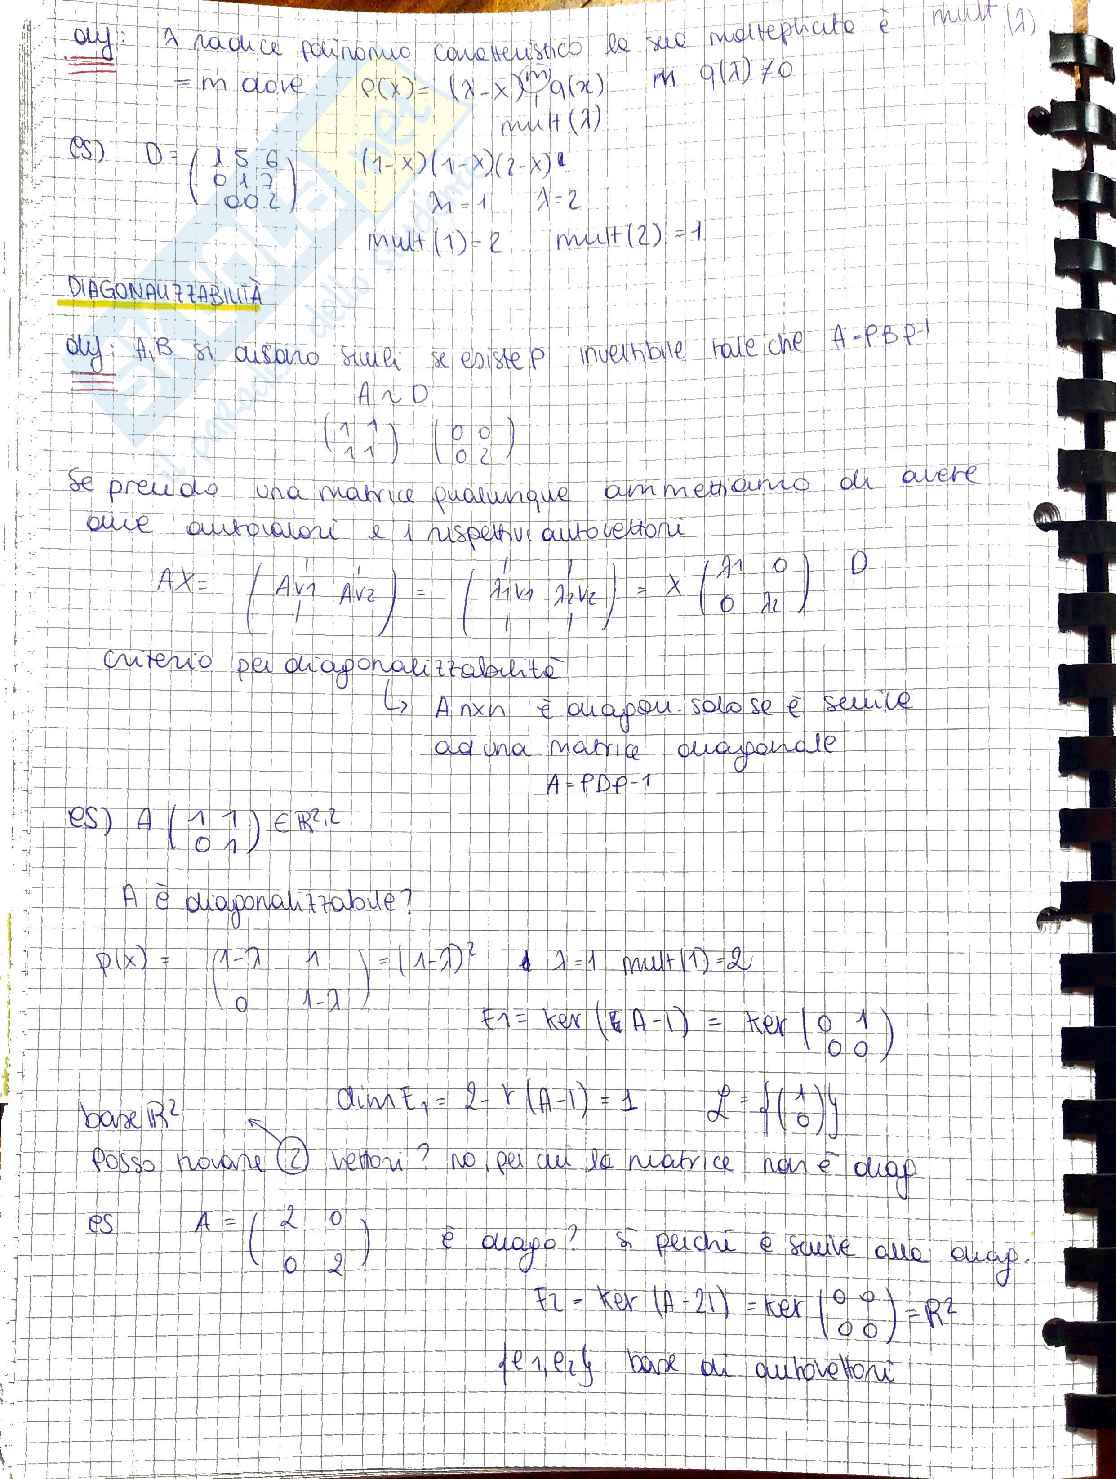 def: λ radice polinomio caratteristico la sua molteplicità è mult(λ)
= m dove p(x) = (λ-x)^m q(x) m q(λ) ≠ 0
mult(λ)
es) D = (1 5 6
0 1 7
0 0 2) (1-x)(1-x)(2-x)
λ1 = 1 λ = 2
mult(1) = 2 mult(2) = 1
DIAGONALIZZABILITÀ
def: A,B si dicono simili se esiste P invertibile tale che A = PBP-1
A ~ D
(1 1
1 1) (0 0
0 2)
Se prendo una matrice qualunque ammettiamo di avere
due autovalori e i rispettivi autovettori
AX = (Av1 Av2) = (λ1v1 λ2v2) = X (λ1 0
0 λ2) D
criterio per diagonalizzabilità
↳ A nxn è diagon. solo se è simile
ad una matrice diagonale
A = PDP-1
es) A (1 1
0 1) ∈ R2,2
A è diagonalizzabile?
p(x) = (1-λ 1
0 1-λ) = (1-λ)² λ=1 mult(1)=2
E1 = ker (A-1) = ker (0 1
0 0)
dim E1 = 2 - r(A-1) = 1 L = {(1
0)}
base R²
Posso trovare 2 vettori? no, per cui la matrice non è diag
es A = (2 0
0 2) è diago? sì perché è simile alla diag.
E2 = ker (A-2I) = ker (0 0
0 0) = R²
{e1, e2} base di autovettori